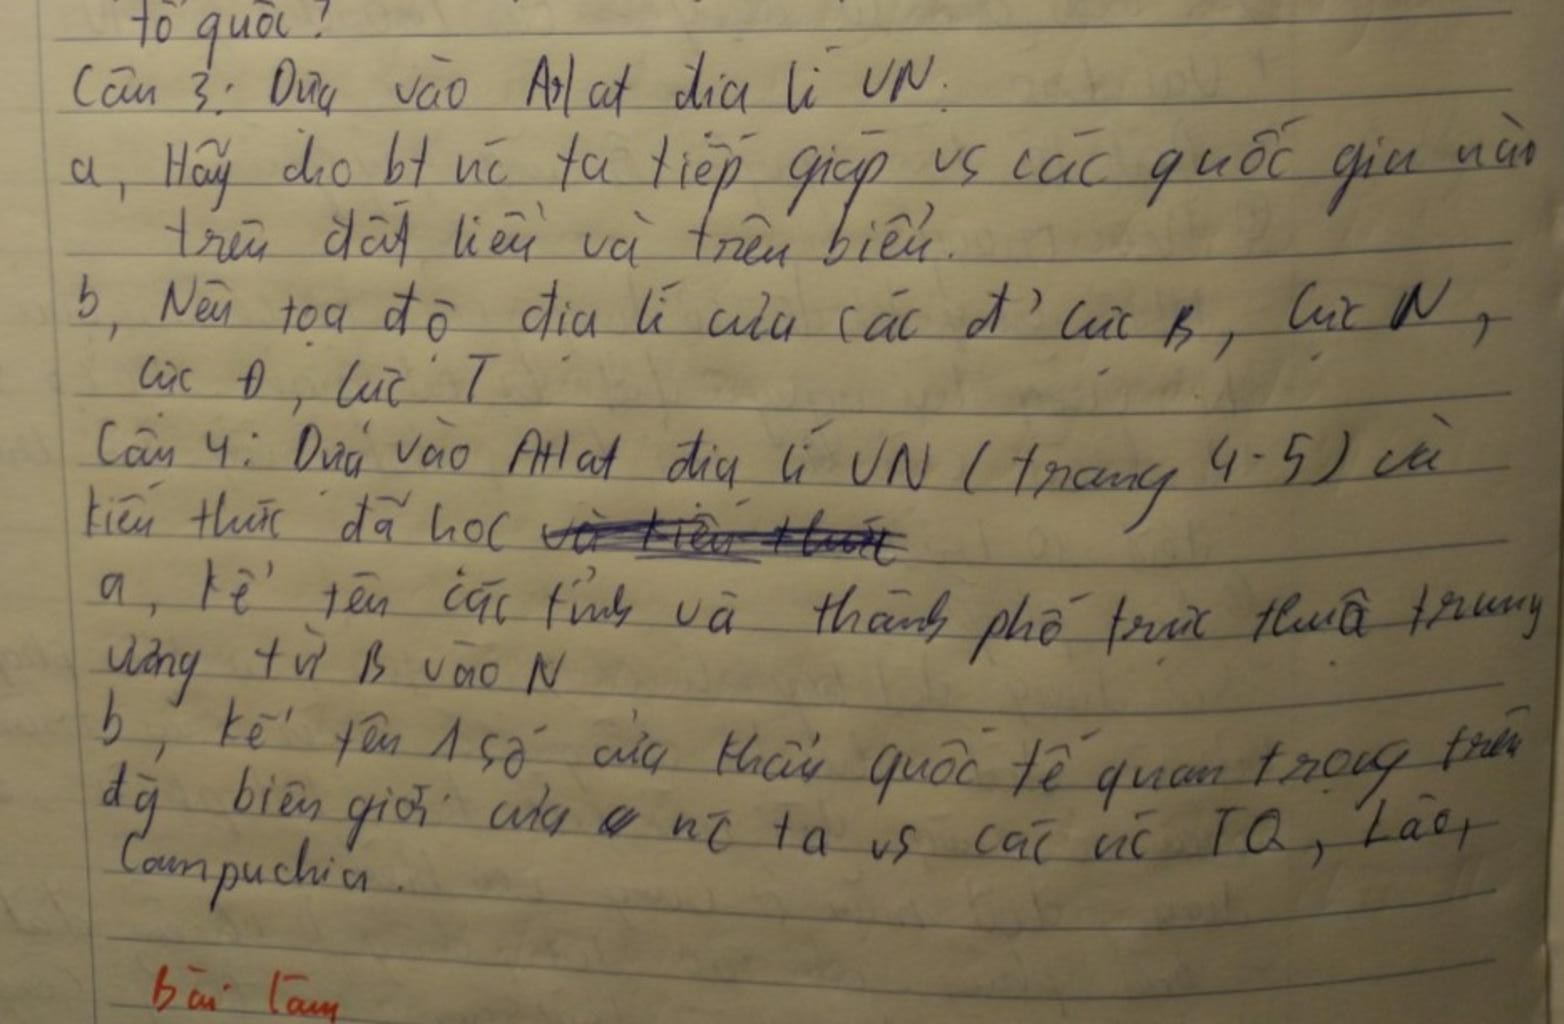 tổ quốc?
Câu 3: Dựa vào Atlat địa lí VN.
a, Hãy cho bt nc ta tiếp giáp vs các quốc gia nào
trên đất liền và trên biển.
b, Nêu tọa độ địa lí của các đ' cực B, cực N,
cực Đ, cực T
Câu 4: Dựa vào Atlat địa lí VN (trang 4-5) và
kiến thức đã học và kiến thức
a, kể tên các tỉnh và thành phố trực thuộ trung
ương từ B vào N
b, kể tên 1 số cửa khẩu quốc tế quan trọng trên
đg biên giới của nc ta vs các nc TQ, Lào,
Campuchia.
Bài làm